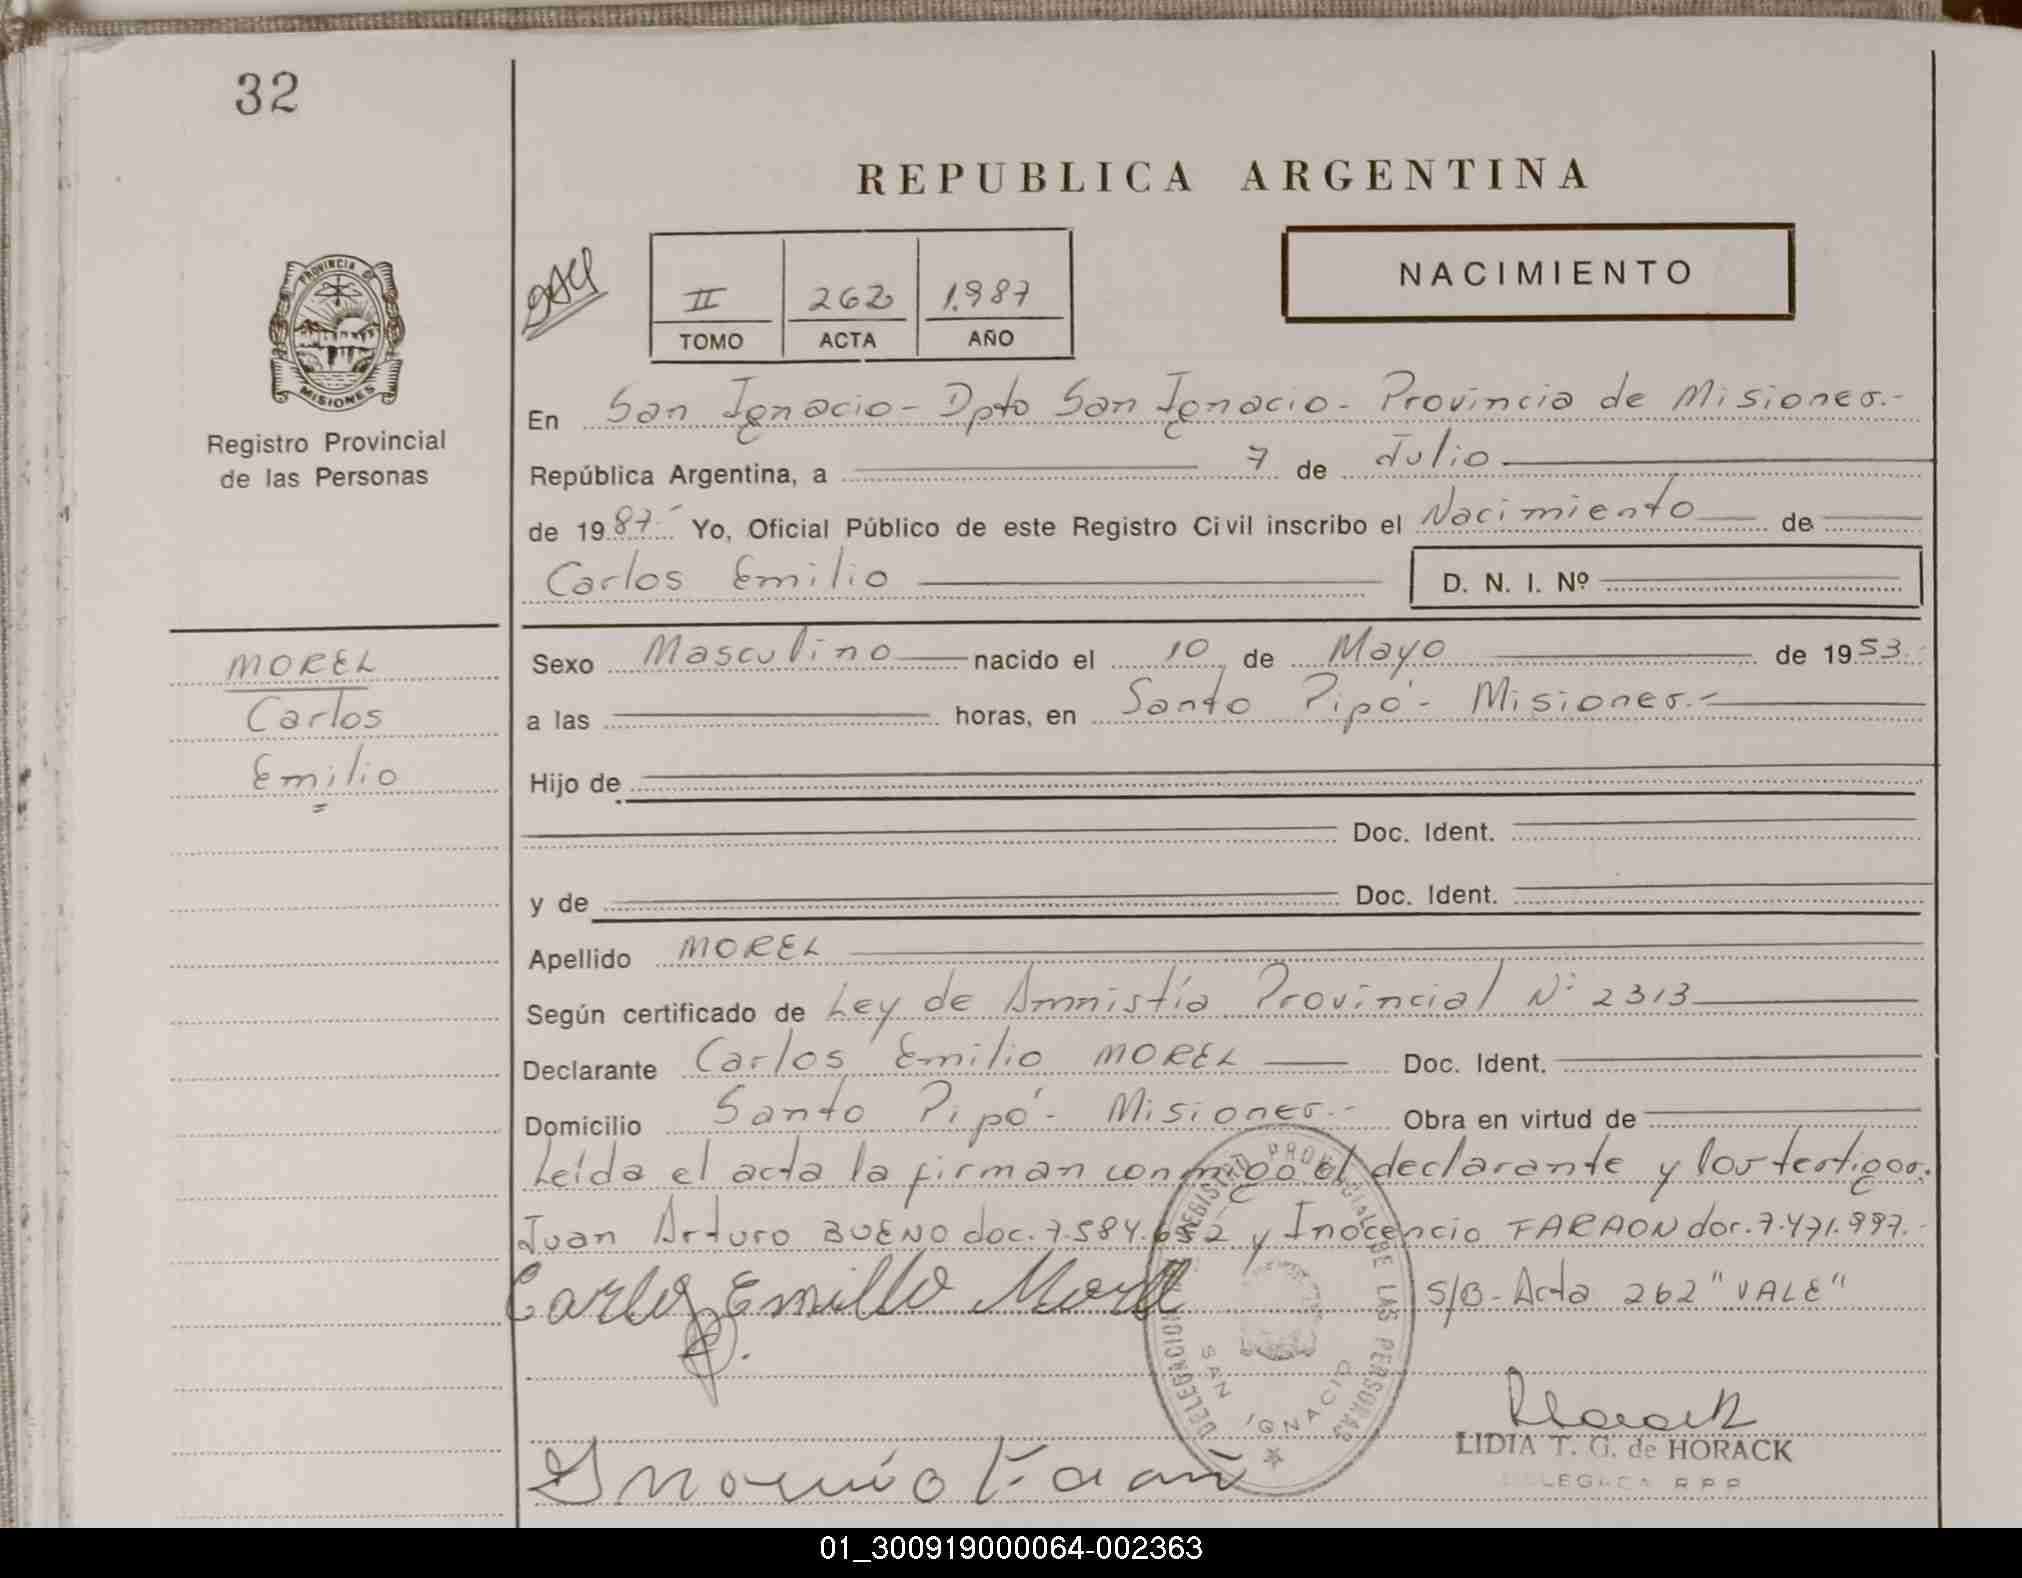 32
REPUBLICA ARGENTINA
NACIMIENTO
PROVINCIA DE
MISIONES
Registro Provincial
de las Personas
II 262 1.987
TOMO ACTA AÑO
En San Ignacio - Dpto San Ignacio - Provincia de Misiones.-
República Argentina, a 7 de Julio
de 1987.- Yo, Oficial Público de este Registro Civil inscribo el Nacimiento de
Carlos Emilio D. N. I. Nº
MOREL
Carlos
Emilio
Sexo Masculino nacido el 10 de Mayo de 1953.
a las horas, en Santo Pipó - Misiones.-
Hijo de
Doc. Ident.
y de Doc. Ident.
Apellido MOREL
Según certificado de Ley de Amnistía Provincial Nº 2313
Declarante Carlos Emilio MOREL Doc. Ident.
Domicilio Santo Pipó - Misiones.- Obra en virtud de
Leída el acta la firman conmigo el declarante y los testigos.
Juan Arturo BUENO doc. 7.584.652 y Inocencio FARAON doc. 7.471.997.-
Carlos Emillo Morel S/B - Acta 262 "VALE"
DELEGACION REGISTRO PROVINCIAL DE LAS PERSONAS
SAN IGNACIO
Horack
LIDIA T. G. de HORACK
DELEGADA R P P
01_300919000064-002363